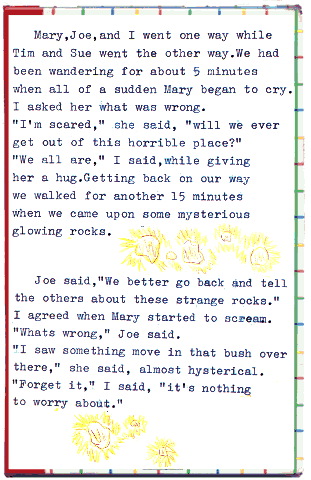 Mary,Joe,and I went one way while
Tim and Sue went the other way.We had
been wandering for about 5 minutes
when all of a sudden Mary began to cry.
I asked her what was wrong.
"I'm scared," she said, "will we ever
get out of this horrible place?"
"We all are," I said,while giving
her a hug.Getting back on our way
we walked for another 15 minutes
when we came upon some mysterious
glowing rocks.
Joe said,"We better go back and tell
the others about these strange rocks."
I agreed when Mary started to scream.
"Whats wrong," Joe said.
"I saw something move in that bush over
there," she said, almost hysterical.
"Forget it," I said, "it's nothing
to worry about."